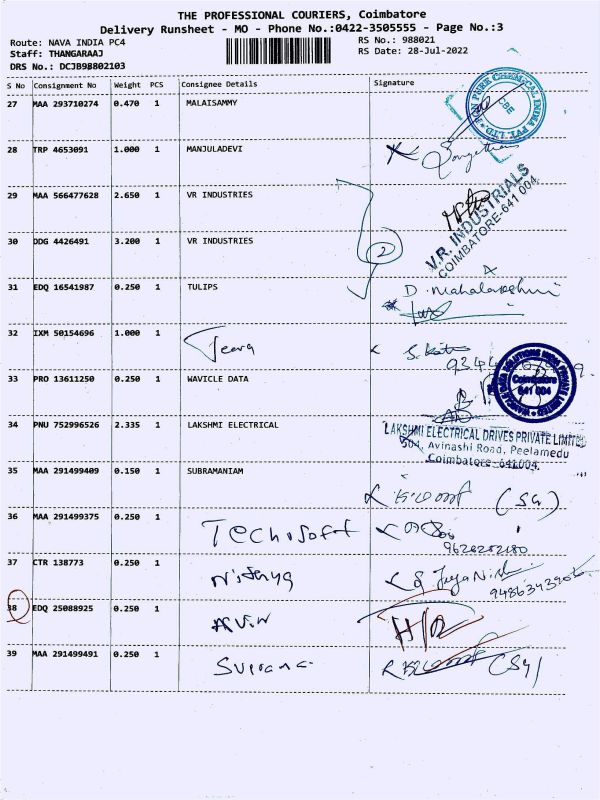 THE PROFESSIONAL COURIERS, Coimbatore
Delivery Runsheet - MO - Phone No.:0422-3505555 - Page No.:3
Route: NAVA INDIA PC4 RS No.: 988021
Staff: THANGARAAJ RS Date: 28-Jul-2022
DRS No.: DCJB98802103
S No Consignment No Weight PCS Consignee Details Signature
27 MAA 293710274 0.470 1 MALAISAMMY
CBE
28 TRP 4653091 1.000 1 MANJULADEVI
29 MAA 566477628 2.650 1 VR INDUSTRIES
V.R. INDUSTRIALS
COIMBATORE-641 004
30 DDG 4426491 3.200 1 VR INDUSTRIES
2
31 EDQ 16541987 0.250 1 TULIPS D. Mahalakshmi
32 IXM 50154696 1.000 1 Jeeva
33 PRO 13611250 0.250 1 WAVICLE DATA
Coimbatore
641 004
34 PNU 752996526 2.335 1 LAKSHMI ELECTRICAL
LAKSHMI ELECTRICAL DRIVES PRIVATE LIMITED
504, Avinashi Road, Peelamedu
Coimbatore-641004.
35 MAA 291499409 0.150 1 SUBRAMANIAM
36 MAA 291499375 0.250 1 Techsoft
37 CTR 138773 0.250 1 Nithya
38 EDQ 25088925 0.250 1
39 MAA 291499491 0.250 1